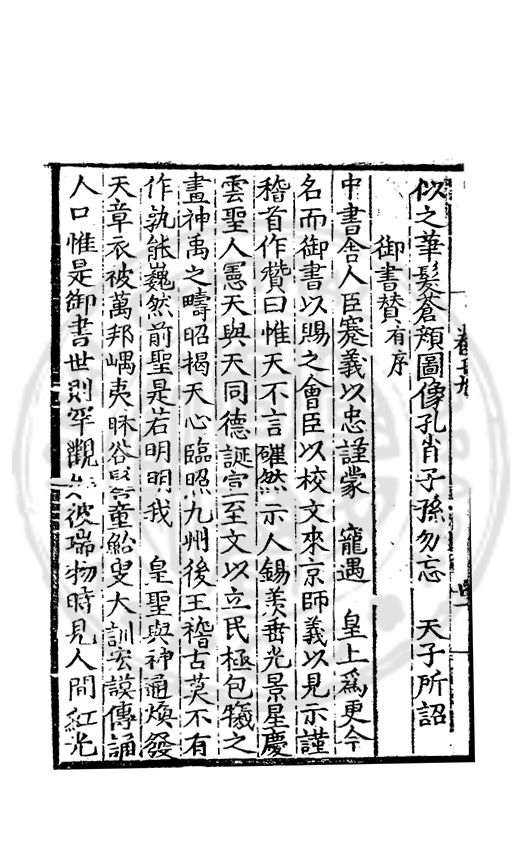 似之華髮蒼顏圖像孔肖子孫勿忘　天子所詔
御書賛有序
中書舎人臣蹇義以忠謹蒙　寵遇　皇上爲更今
名而御書以賜之會臣以校文來京師義以見示謹
稽首作賛曰惟天不言確然示人錫羡垂光景星慶
雲聖人憲天與天同德誕宣至文以立民極包犧之
畫神禹之疇昭揭天心臨照九州後王稽古莫不有
作孰能巍然前聖是若明明我　皇聖與神通煥發
天章衣被萬邦嵎夷昧谷童鮐叟大訓宏謨傳誦
人口惟是御書世則罕觀彼瑞物時見人間紅光